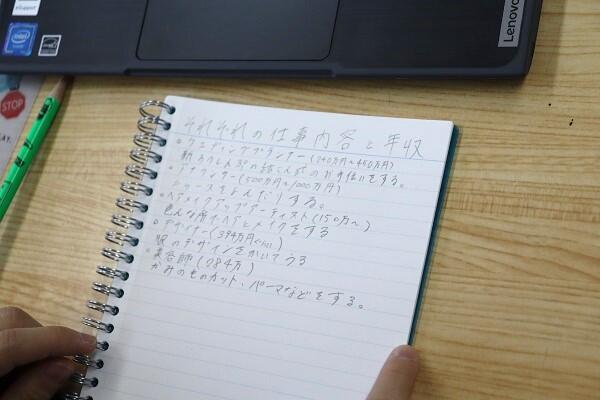 intel
Lenovo
STOP
AY.
それぞれの仕事内容と年収
・ウェディングプランナー(240万円〜450万円)
新ろうしんぷの結こん式のお手伝いをする。
・アナウンサー(500万円〜1000万円)
ニュースをよんだりする。
・ヘアメイクアップアーティスト(150万〜)
色んな所でヘアとメイクをする
・デザイナー(394万円くらい)
服のデザインをかいてうる
・美容師(284万)
かみのものカット、パーマなどをする。